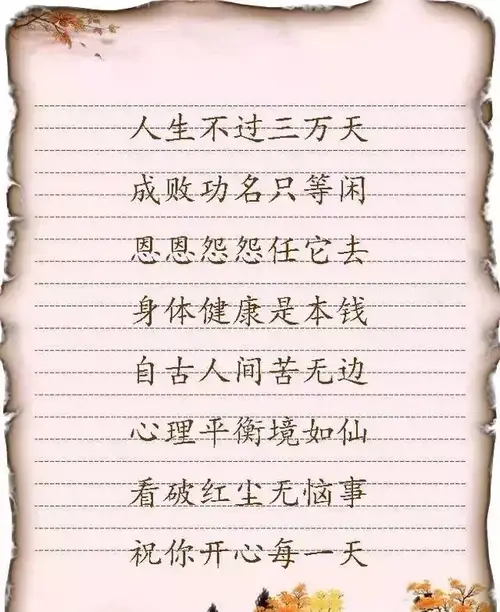 人生不过三万天
成败功名只等闲
恩恩怨怨任它去
身体健康是本钱
自古人间苦无边
心理平衡境如仙
看破红尘无恼事
祝你开心每一天